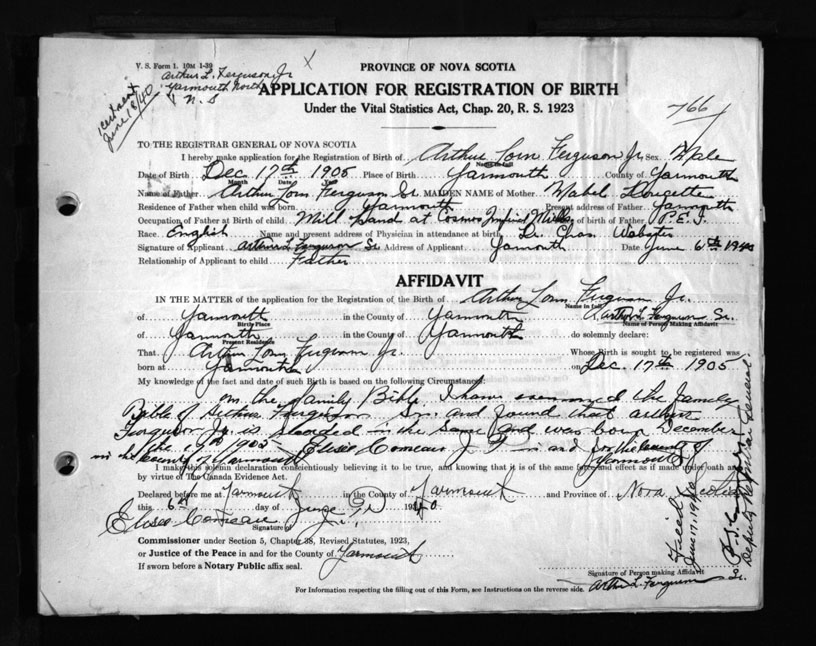 V. S. Form 1. 10M 1-39
Arthur L. Ferguson Jr
Yarmouth North
N. S
June 18/40
PROVINCE OF NOVA SCOTIA
APPLICATION FOR REGISTRATION OF BIRTH
Under the Vital Statistics Act, Chap. 20, R. S. 1923
766
TO THE REGISTRAR GENERAL OF NOVA SCOTIA
I hereby make application for the Registration of Birth of Arthur Lorn Ferguson Jr Sex Male
Name in full
Date of Birth Dec 17th 1905 Place of Birth Yarmouth County of Yarmouth
Month Date Year
Name of Father Arthur Lorn Ferguson Sr MAIDEN NAME of Mother Mabel Doucette
Residence of Father when child was born Yarmouth Present address of Father Yarmouth
Occupation of Father at Birth of child Mill hand at Cosmos Mills of birth of Father P.E.I.
Race English Name and present address of Physician in attendance at birth Dr. Chas Webster
Signature of Applicant Arthur L Ferguson Sr Address of Applicant Yarmouth Date June 6th 1940
Relationship of Applicant to child Father
AFFIDAVIT
IN THE MATTER of the application for the Registration of the Birth of Arthur Lorn Ferguson Jr.
Name in full
of Yarmouth in the County of Yarmouth Arthur L. Ferguson Sr.
Birth Place Name of Person Making Affidavit
of Yarmouth in the County of Yarmouth do solemnly declare:
Present Residence
That Arthur Lorn Ferguson Jr. Whose Birth is sought to be registered was
born at Yarmouth on Dec. 17th 1905
My knowledge of the fact and date of such Birth is based on the following Circumstances:
on the family Bible. I have examined the family
Bible of Arthur Ferguson Sr. and found that Arthur
Ferguson Jr. is recorded in the same and was born December
the 17th 1905 Elisée Comeau J P in and for the County of Yarmouth
in the County of Yarmouth
I make this solemn declaration conscientiously believing it to be true, and knowing that it is of the same force and effect as if made under oath and
by virtue of The Canada Evidence Act.
Declared before me at Yarmouth in the County of Yarmouth and Province of Nova Scotia
this 6th day of June 1940
Elisée Comeau J. P.
Signature of
Commissioner under Section 5, Chapter 38, Revised Statutes, 1923,
or Justice of the Peace in and for the County of Yarmouth
If sworn before a Notary Public affix seal.
Filed
Jun 17. 1940
Deputy Registrar General
Signature of Person making Affidavit
Arthur L. Ferguson Sr.
For Information respecting the filling out of this Form, see Instructions on the reverse side.